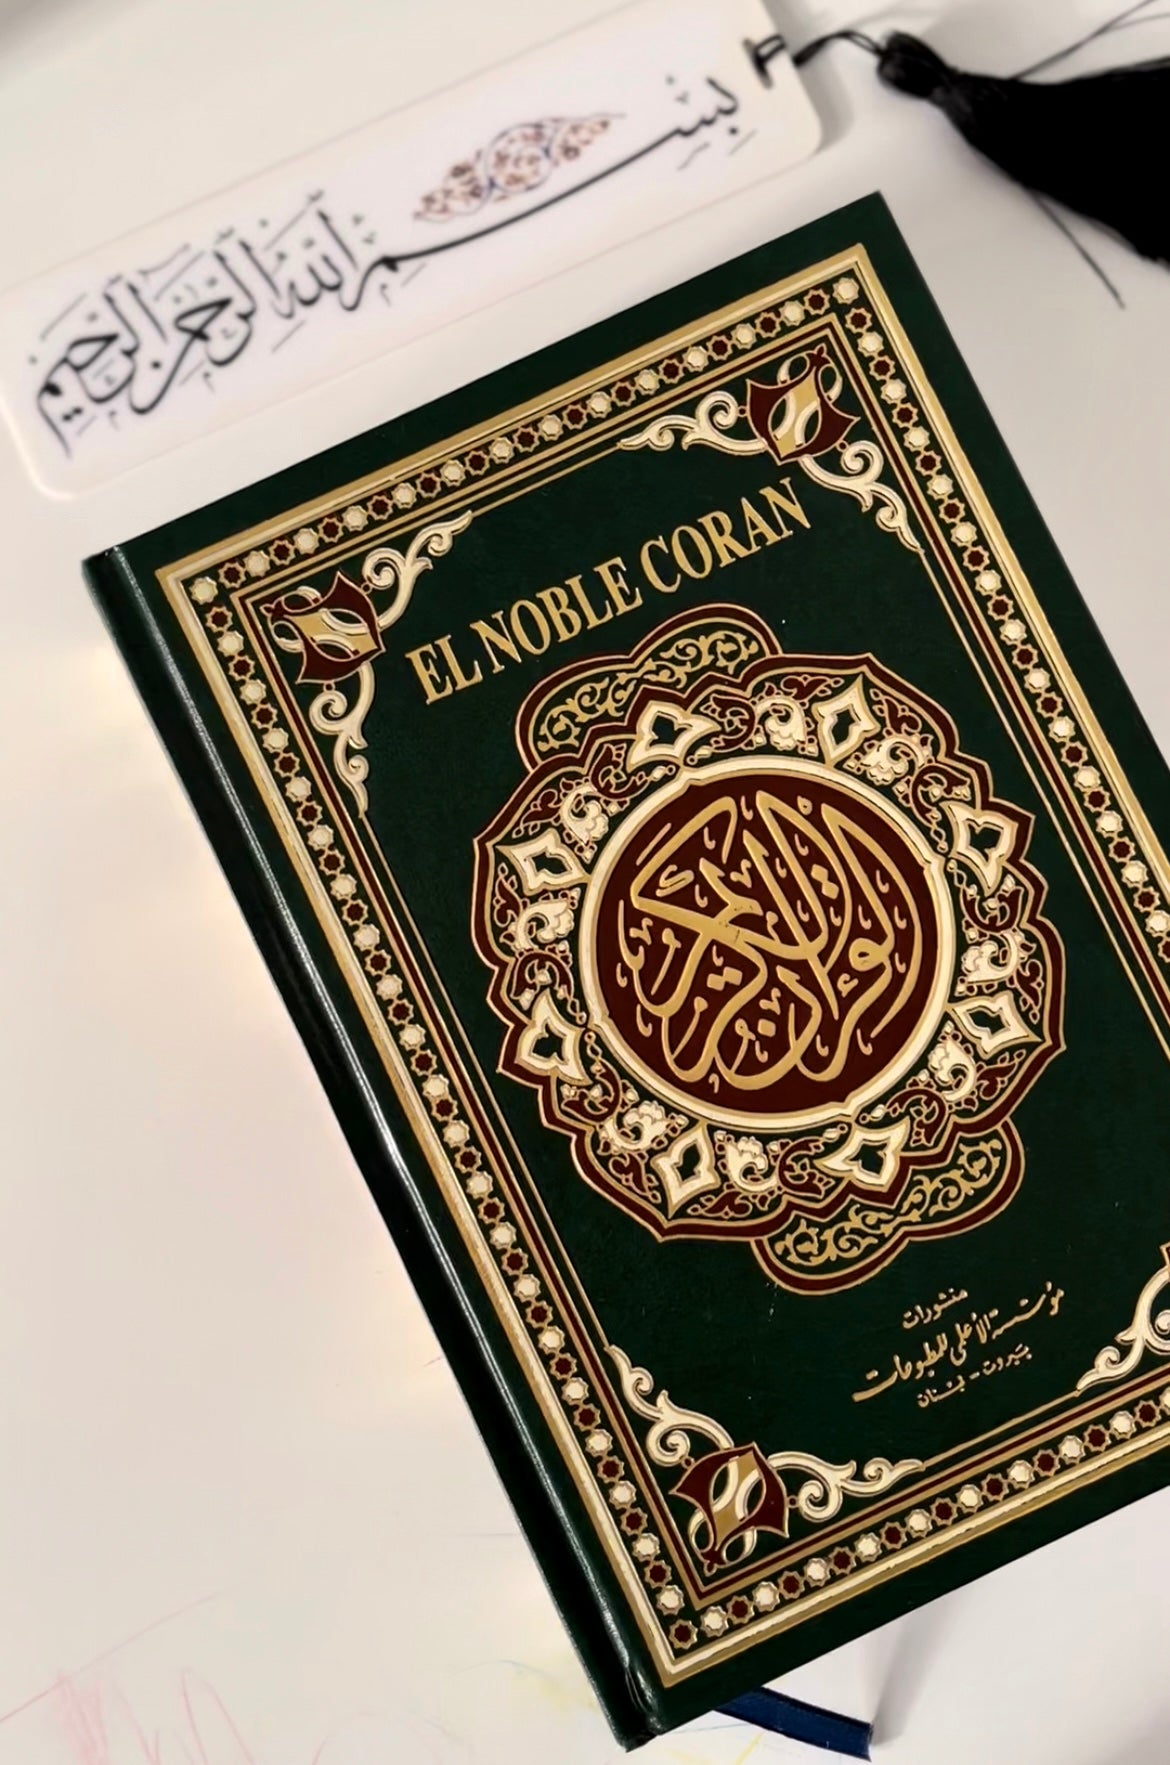 بِسْمِ اللّٰهِ الرَّحْمٰنِ الرَّحِيمِ
EL NOBLE CORAN
القرآن الكريم
منشورات
مؤسسة الأعلمي للمطبوعات
بيروت - لبنان